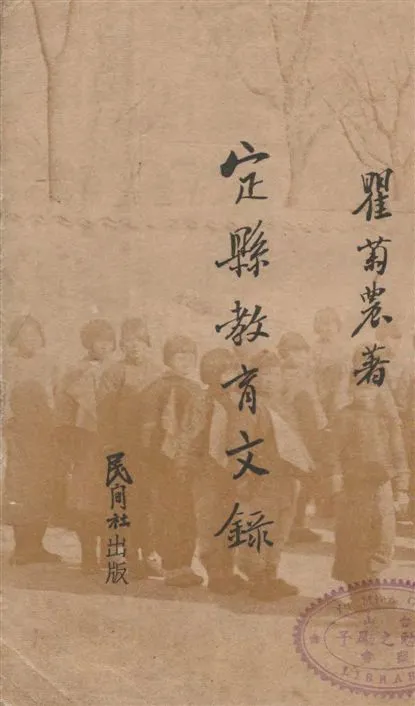 瞿菊農著
定縣教育文錄
民间社出版
LIBRAR